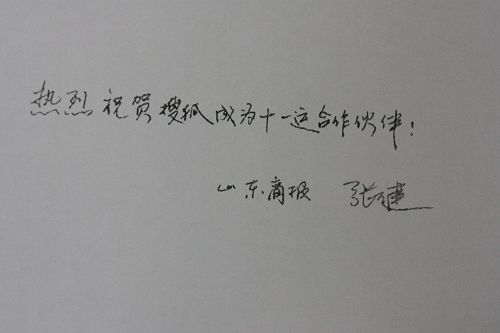 热烈祝贺搜狐成为十一运合作伙伴!
山东商报 张建